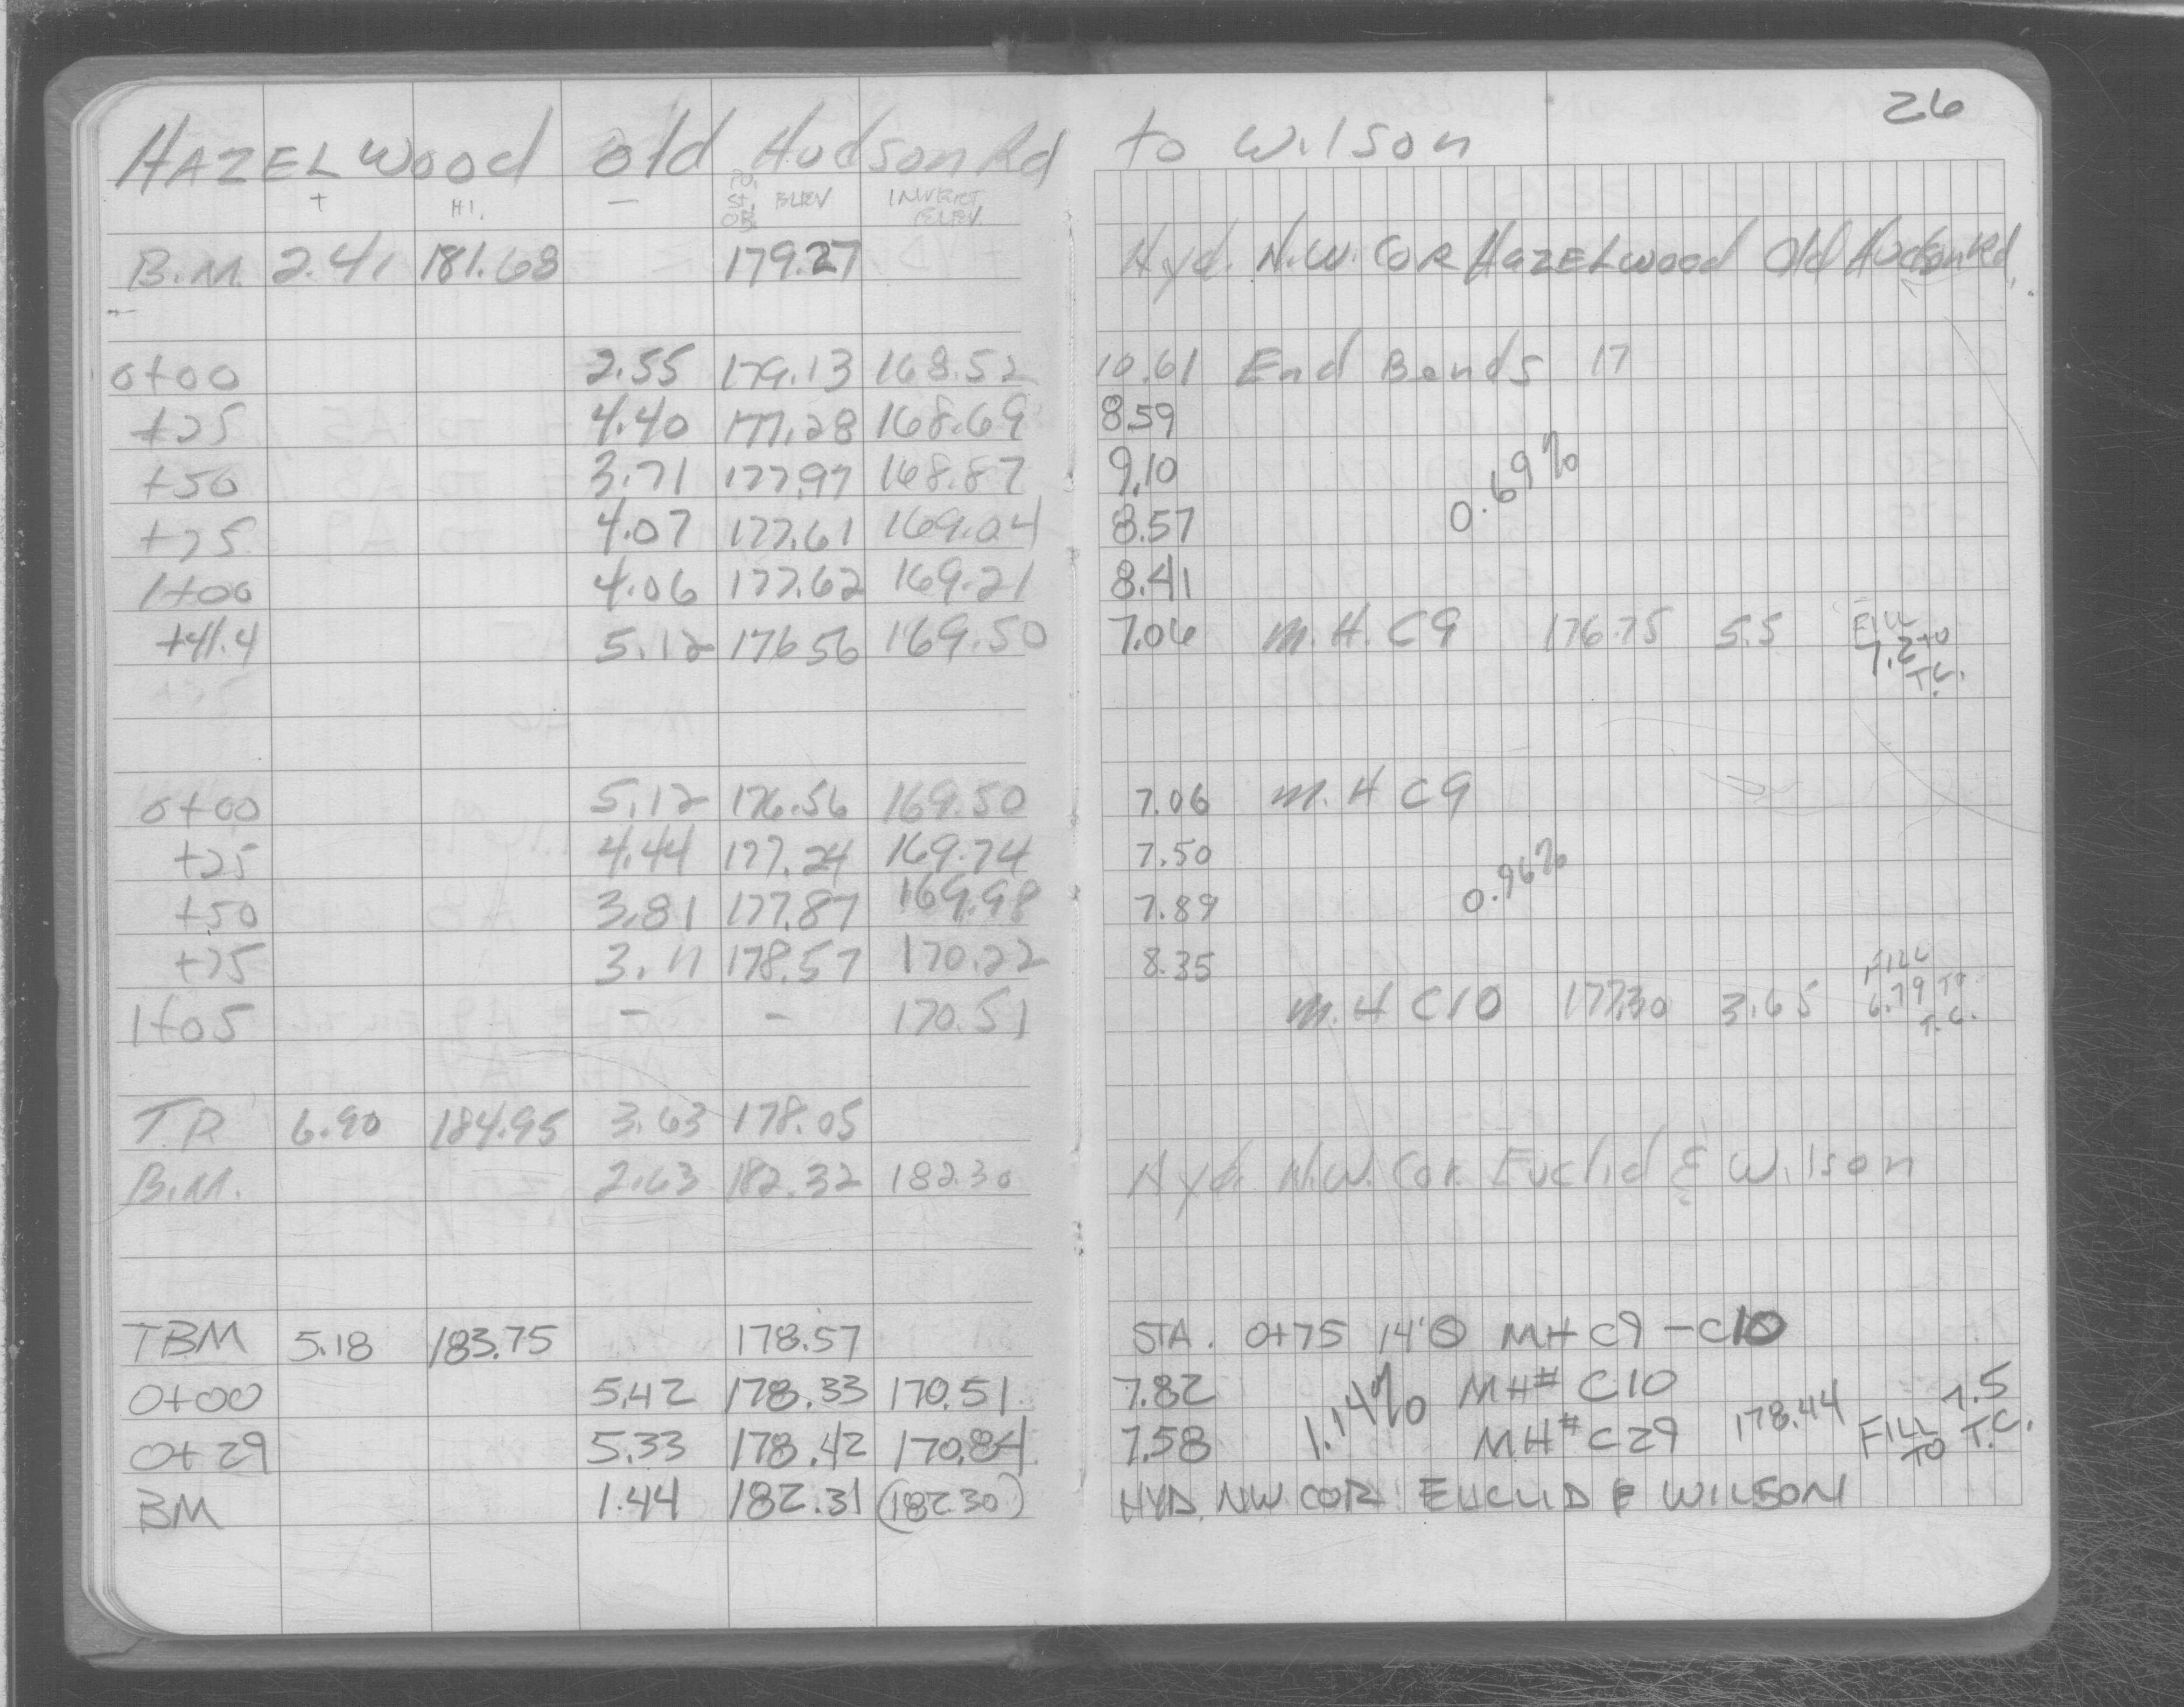 26
HAZELWOOD old Hudson Rd to Wilson
+ H.I. - PO. St. OB. ELEV INVERT ELEV.
B.M. 2.41 181.68 179.27 Hyd. N.W. COR HAZELWOOD Old Hudson Rd.
0+00 2.55 179.13 168.52 10.61 End Bends 17
+25 4.40 177.28 168.69 8.59
+50 3.71 177.97 168.87 9.10 0.69%
+75 4.07 177.61 169.04 8.57
1+00 4.06 177.62 169.21 8.41
+41.4 5.12 176.56 169.50 7.06 M.H. C9 176.75 5.5 FILL 7.2 to T.C.
0+00 5.12 176.56 169.50 7.06 M.H C9
+25 4.44 177.24 169.74 7.50
+50 3.81 177.87 169.98 7.89 0.96%
+75 3.11 178.57 170.22 8.35
1+05 - - 170.51 M.H C10 177.30 3.65 FILL 6.79 TO T.C.
T.P. 6.90 184.95 3.63 178.05
B.M. 2.63 182.32 182.30 Hyd. N.W. Cor. Euclid & Wilson
TBM 5.18 183.75 178.57 STA. 0+75 14' MH C9 - C10
0+00 5.42 178.33 170.51 7.82 1.14% MH# C10
0+29 5.33 178.42 170.84 7.58 MH# C29 178.44 FILL 7.5 TO T.C.
BM 1.44 182.31 (182.30) HYD. NW COR. EUCLID & WILSON